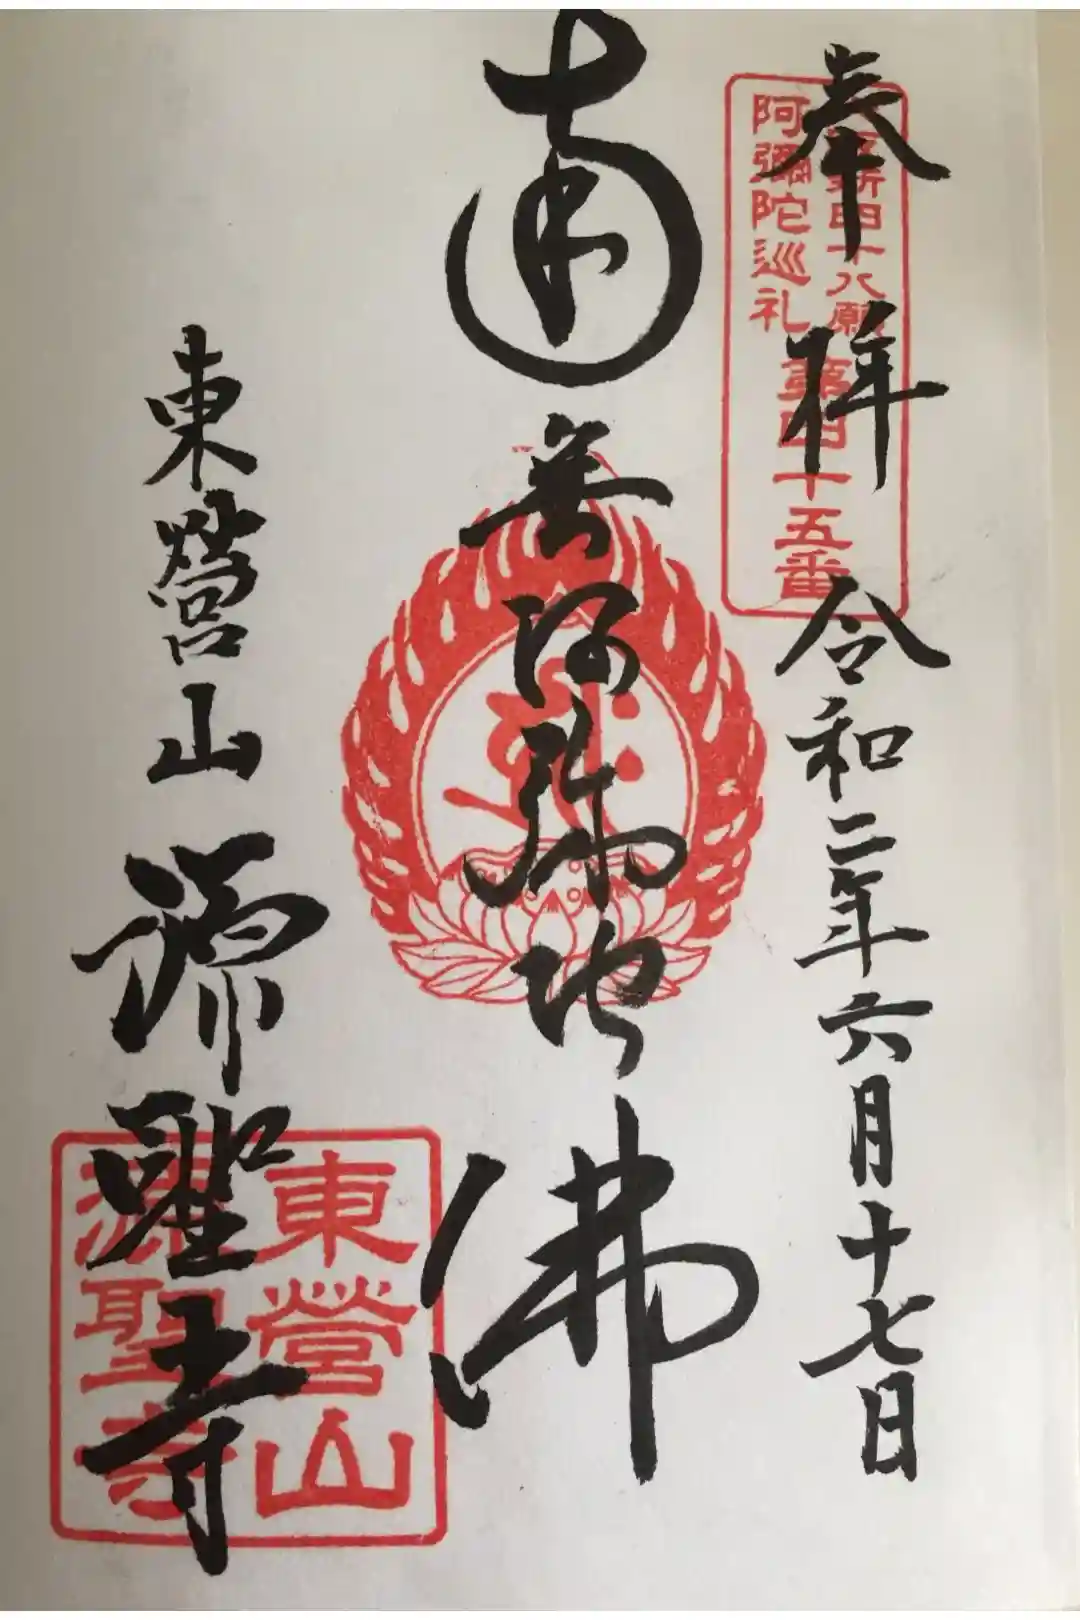 奉拝
令和二年六月十七日
四十八願
阿彌陀巡礼
第四十五番
南無阿弥陀佛
東營山
源聖寺
東營山
源聖寺